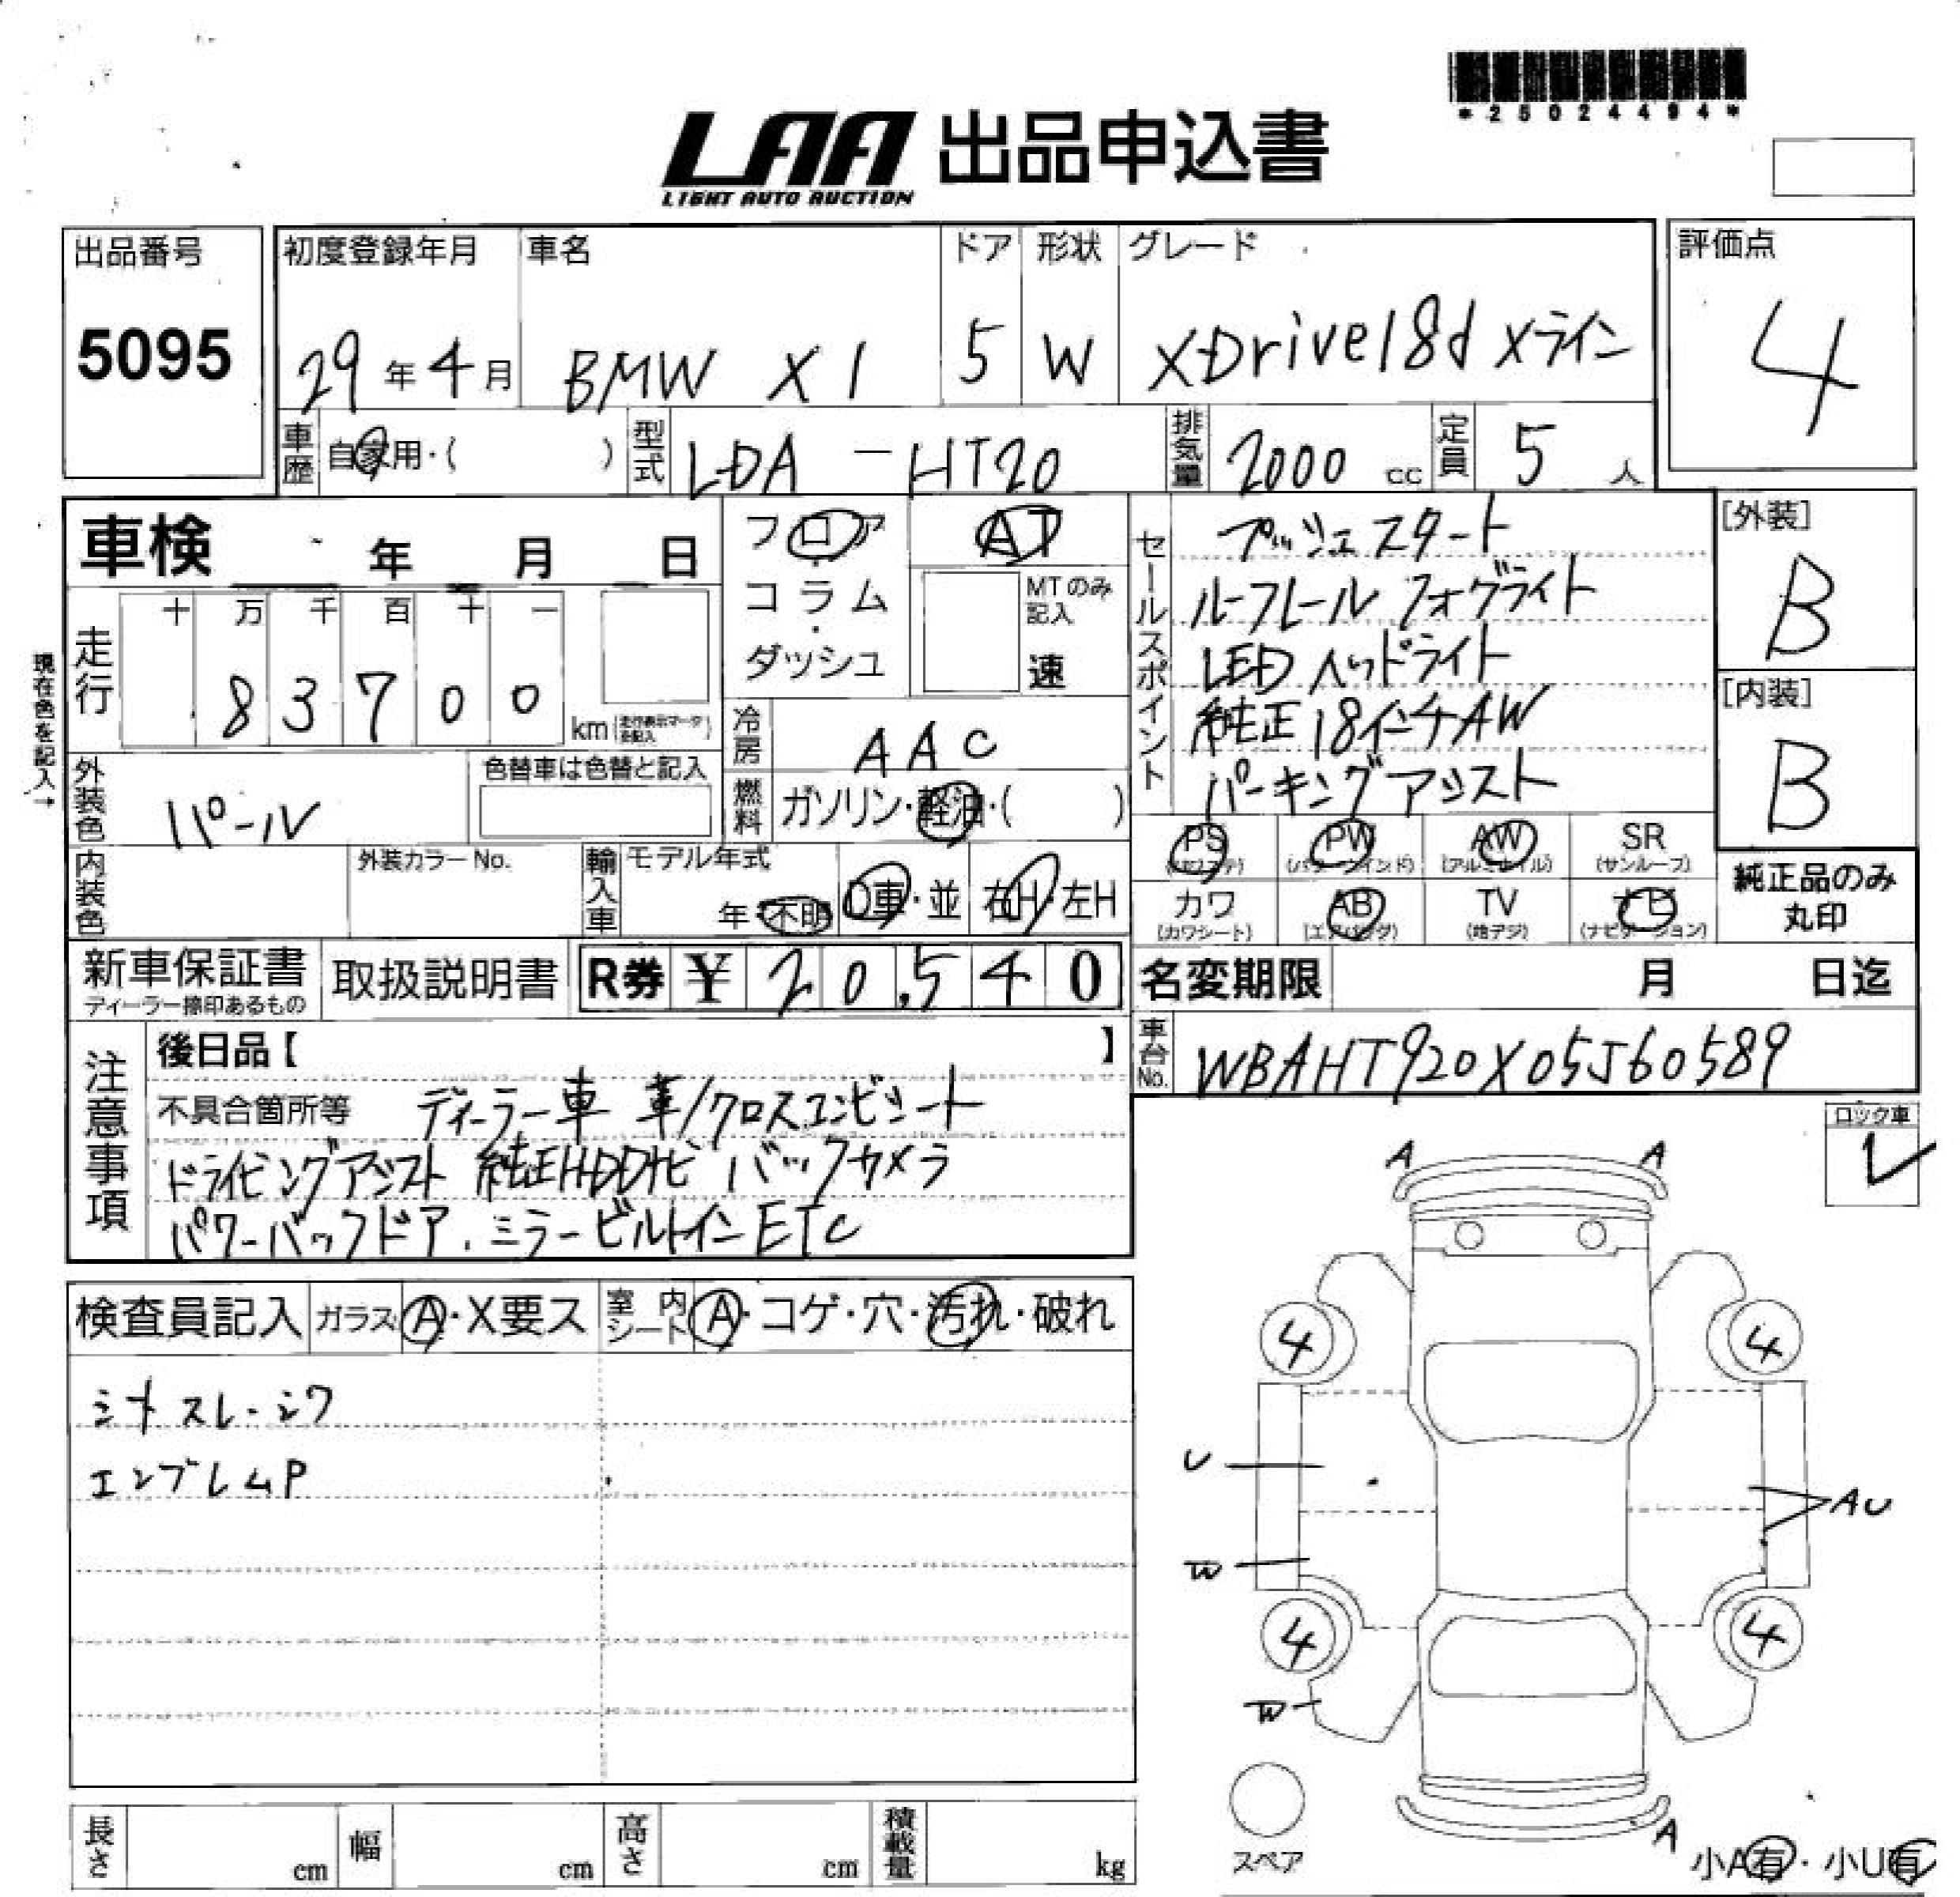 *25024494*
LAA 出品申込書
LIGHT AUTO AUCTION
出品番号 初度登録年月 車名 ドア 形状 グレード 評価点
5095 29年4月 BMW X1 5 W XDrive18d Xライン 4
車歴 自家用・( ) 型式 LDA-HT20 排気量 2000 cc 定員 5人
車検 年 月 日 フロア・コラム・ダッシュ AT
MTのみ記入 速
走行 十 万 千 百 十 一
8 3 7 0 0 km (走行表示マーク要記入)
現在色を記入→
冷房 AAC
燃料 ガソリン・軽油・( )
外装色 パール 色替車は色替と記入
内装色 外装カラーNo. 輸入車 モデル年式 年・不明 D車・並 右H・左H
セールスポイント プッシュスタート
ルーフレール フォグライト
LEDヘッドライト
純正18インチAW
パーキングアシスト
[外装]
B
[内装]
B
PS (パワステ) PW (パワーウインド) AW (アルミホイル) SR (サンルーフ)
カワ (カワシート) AB (エアバッグ) TV (地デジ) ナビ (ナビゲーション)
純正品のみ
丸印
新車保証書 取扱説明書 R券 ¥ 20,540 名変期限 月 日迄
ディーラー捺印あるもの
車台No. WBAHT920X05J60589
注意事項 後日品【 】
不具合箇所等 ディーラー車 革/クロスコンビシート
ドライビングアシスト 純正HDDナビ バックカメラ
パワーバックドア、ミラービルトインETC
ロック車
レ
検査員記入 ガラス A・X要ス 室内シート A・コゲ・穴・汚れ・破れ
エンブレムP
A A
4 4
U
AU
W
4 4
W
スペア
A
小A有・小U有
長さ cm 幅 cm 高さ cm 積載量 kg